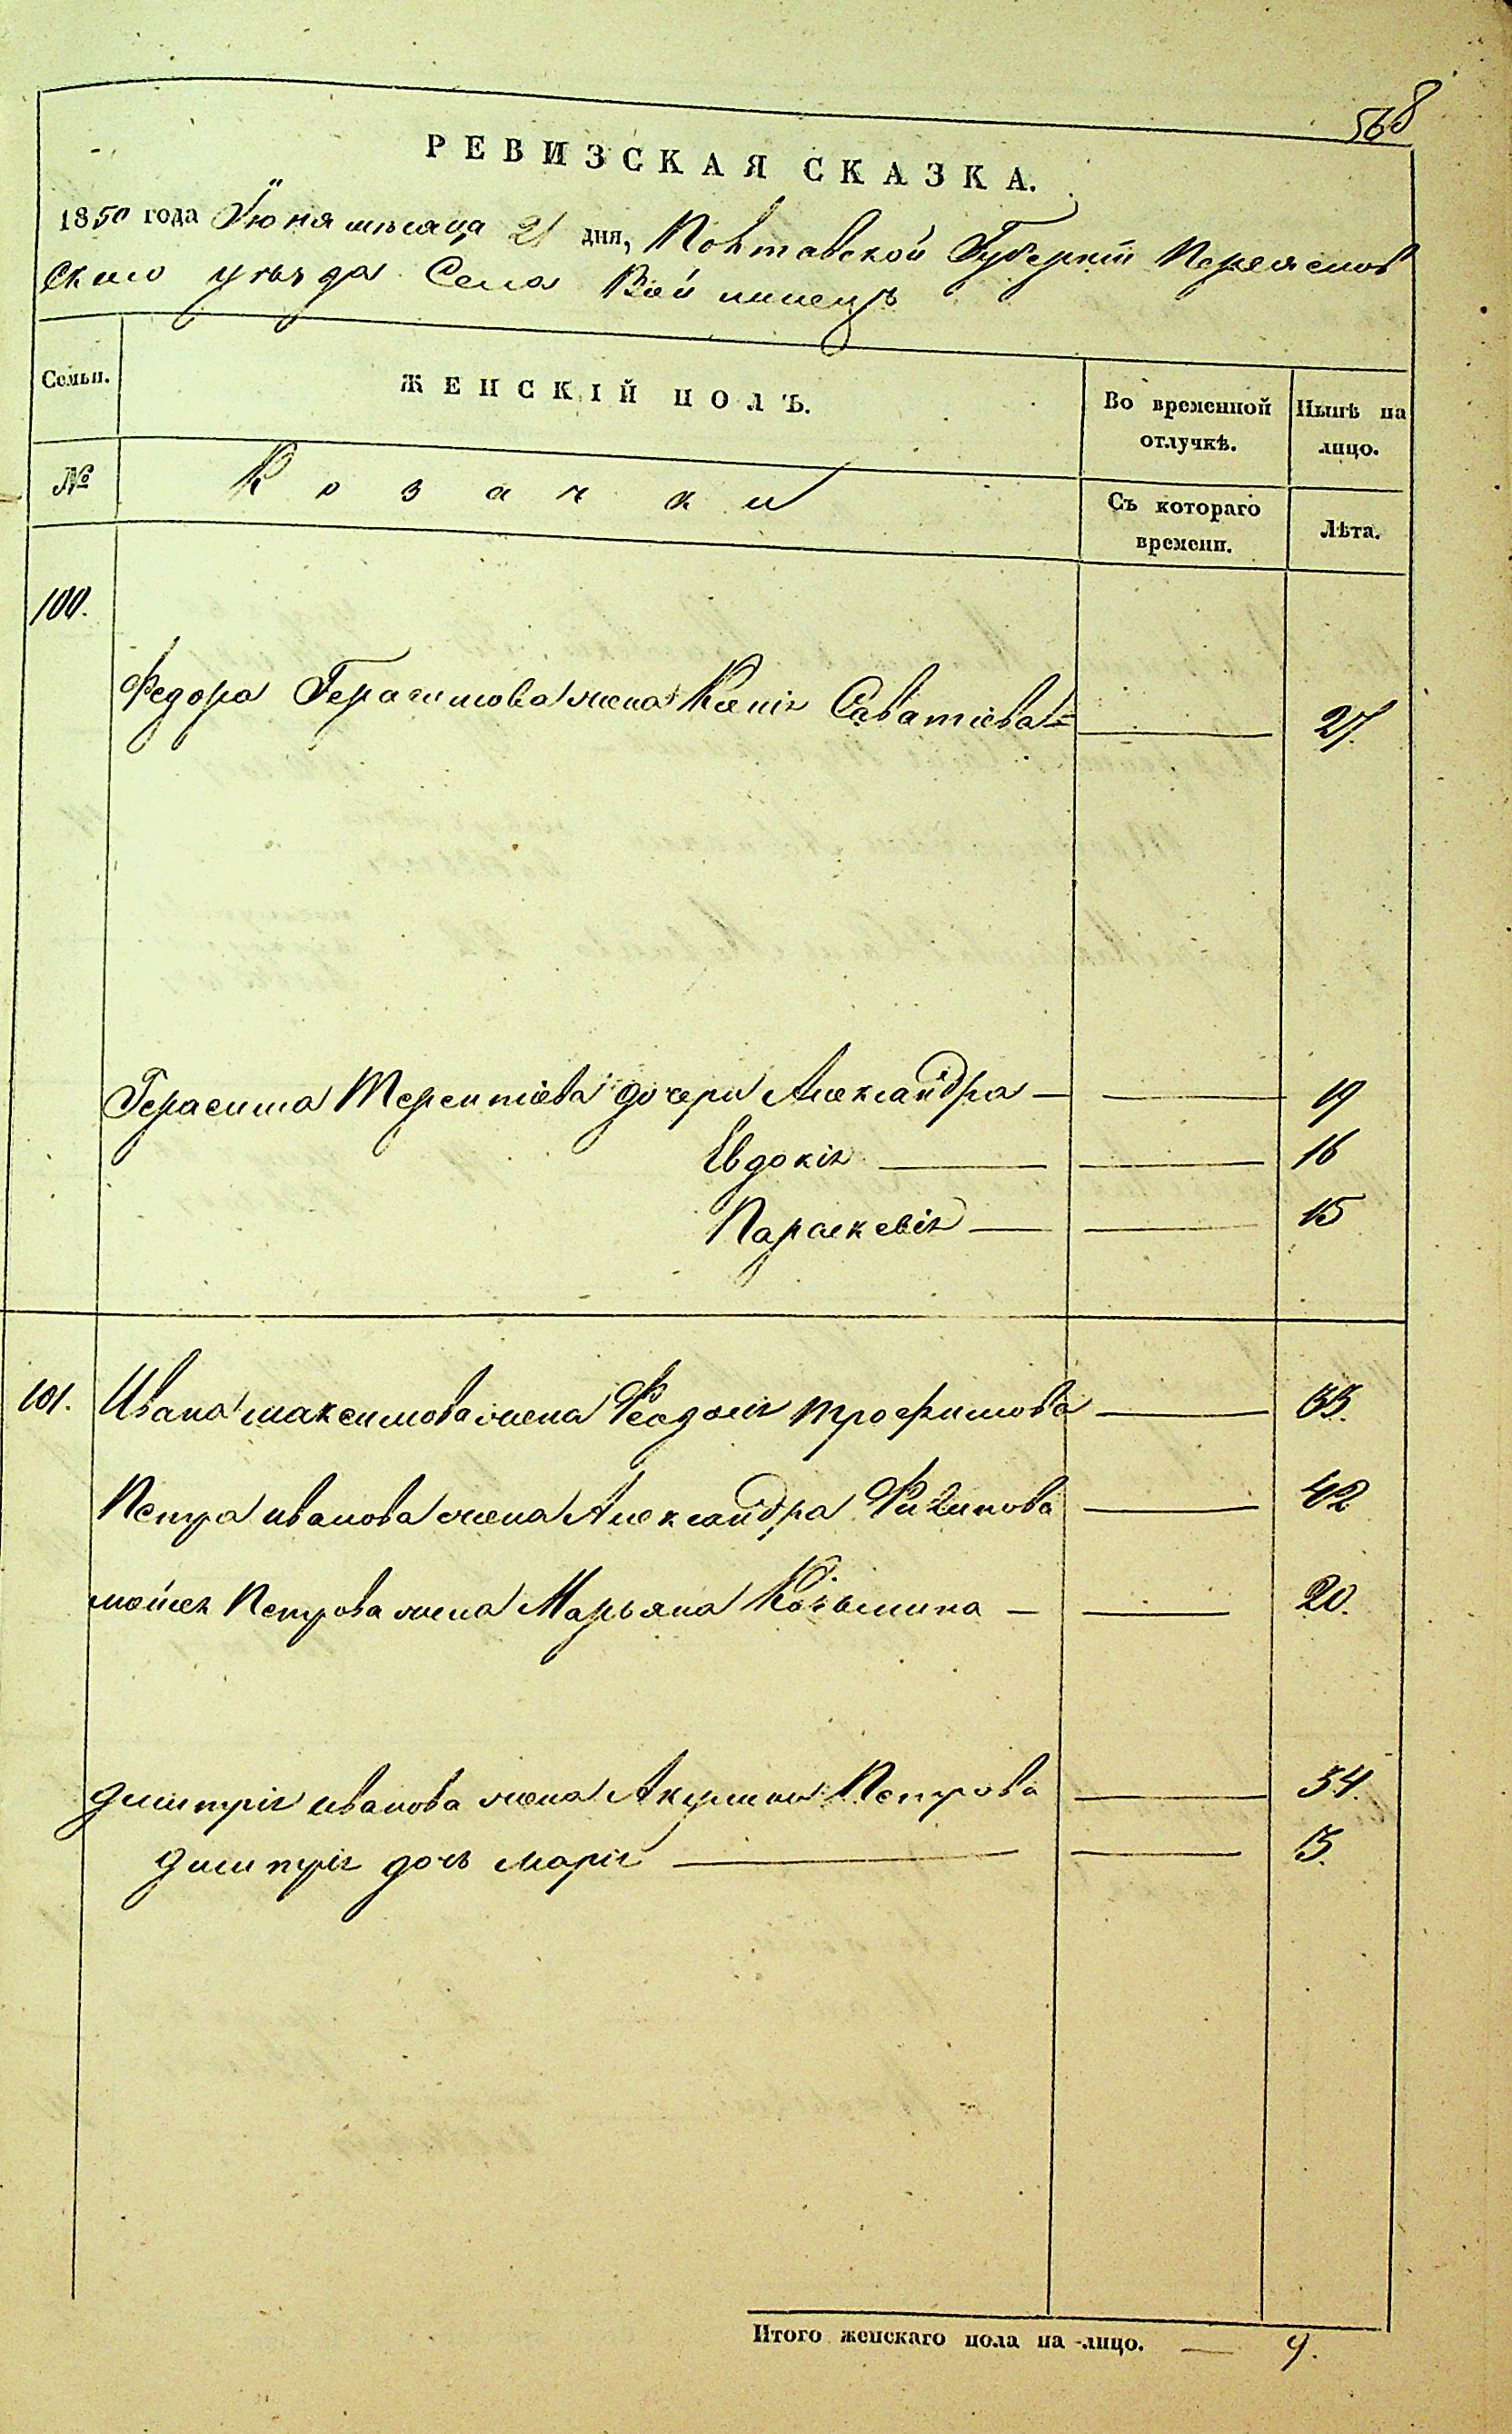 568
РЕВИЗСКАЯ СКАЗКА.
1850 года Іюня мѣсяца 21 дня, Полтавской Губерніи Переяслов
скаго уѣзда Села Войтинецъ
Семьи. ЖЕНСКІЙ ПОЛЪ. Во временной отлучкѣ. Нынѣ на лицо.
№ Козачки Съ котораго времени. Лѣта.
100.
Федора Герасимова жена Ксенія Саватіева 27.
Герасима Терентіева дочери Александра 19
Евдокія 16
Параскевія 15
101. Ивана Максимова жена Феодосія Трофимова 65.
Петра иванова жена Александра Филипова 42
мойсея Петрова жена Марьяна Козьмина 20.
Димитрія иванова жена Акулина Петрова 34.
Димитрія дочь Марія 13.
Итого женскаго пола на-лицо. 9.